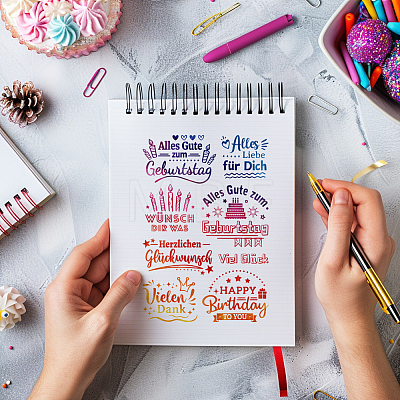 Alles Gute
zum
Geburtstag
Alles
Liebe
für Dich
WÜNSCH
DIR WAS
Alles Gute zum
Geburtstag
Herzlichen
Glückwunsch
Viel Glück
Vielen
Dank
HAPPY
Birthday
TO YOU